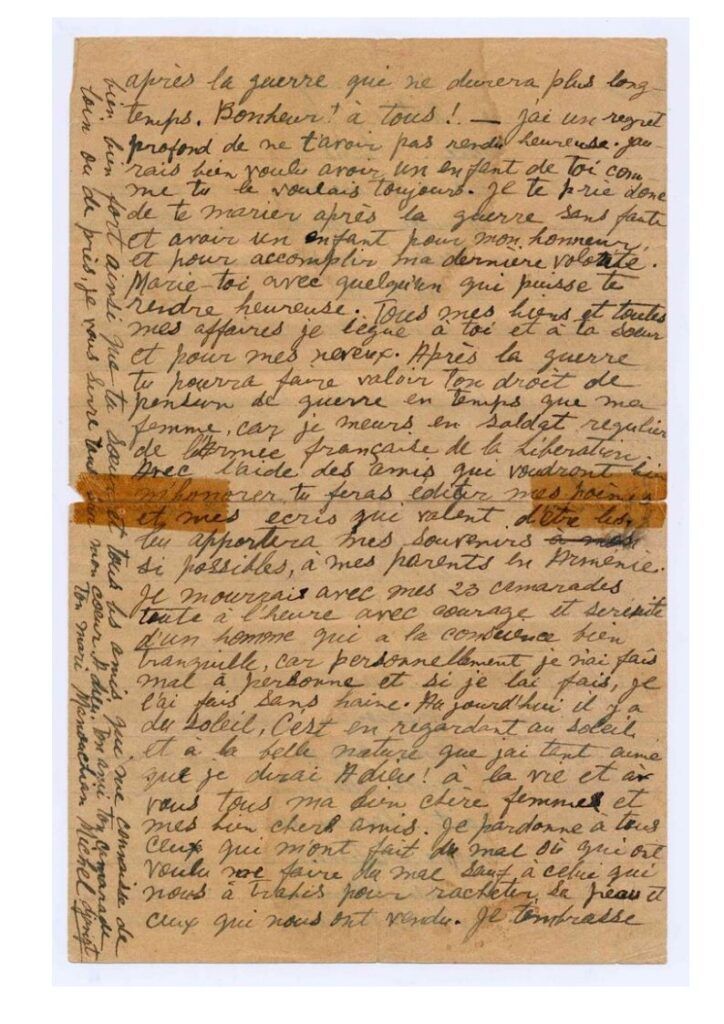 après la guerre qui ne durera plus long-
temps. Bonheur! à tous! — j'ai un regret
profond de ne t'avoir pas rendu heureuse. j'au-
rais bien voulu avoir un enfant de toi com
me tu le voulais toujours. Je te prie donc
de te marier après la guerre sans faute
et avoir un enfant pour mon honneur,
et pour accomplir ma dernière volonté.
Marie-toi avec quelqu'un qui puisse te
rendre heureuse. Tous mes biens et toutes
mes affaires je lègue à toi et à ta sœur
et pour mes neveux. Après la guerre
tu pourra faire valoir ton droit de
pension de guerre en temps que ma
femme, car je meurs en soldat regulier
de l'Armee française de la Libération.
Avec l'aide des amis qui voudront bi
m'honorer tu feras éditer mes poè
et mes ecris qui valent d'être lus,
tu apportera mes souvenirs
si possibles, à mes parents en Arménie.
Je mourrais avec mes 23 camarades
toute à l'heure avec courage et serénité
d'un homme qui a la conscience bien
tranquille, car personnellement je n'ai fais
mal à personne et si je lai fais, je
l'ai fais sans haine. Aujourd'hui il y a
du soleil, C'est en regardant au soleil
et à la belle nature que jai tant aimé
que je dirai Adieu! à la vie et à
vous tous ma bien chère femme et
mes bien chers amis. Je pardonne à tous
ceux qui mont fait du mal où qui ont
voulu me faire du mal sauf à celui qui
nous à trahis pour racheter sa peau et
ceux qui nous ont vendu. Je t'embrasse
bien bien fort ainsi que ta sœur et tous les amis qui me connaisse de
loin ou de près, je vous serre tous sur mon cœur. Adieu. Ton ami ton camarade
Ton mari Manouchian Michel